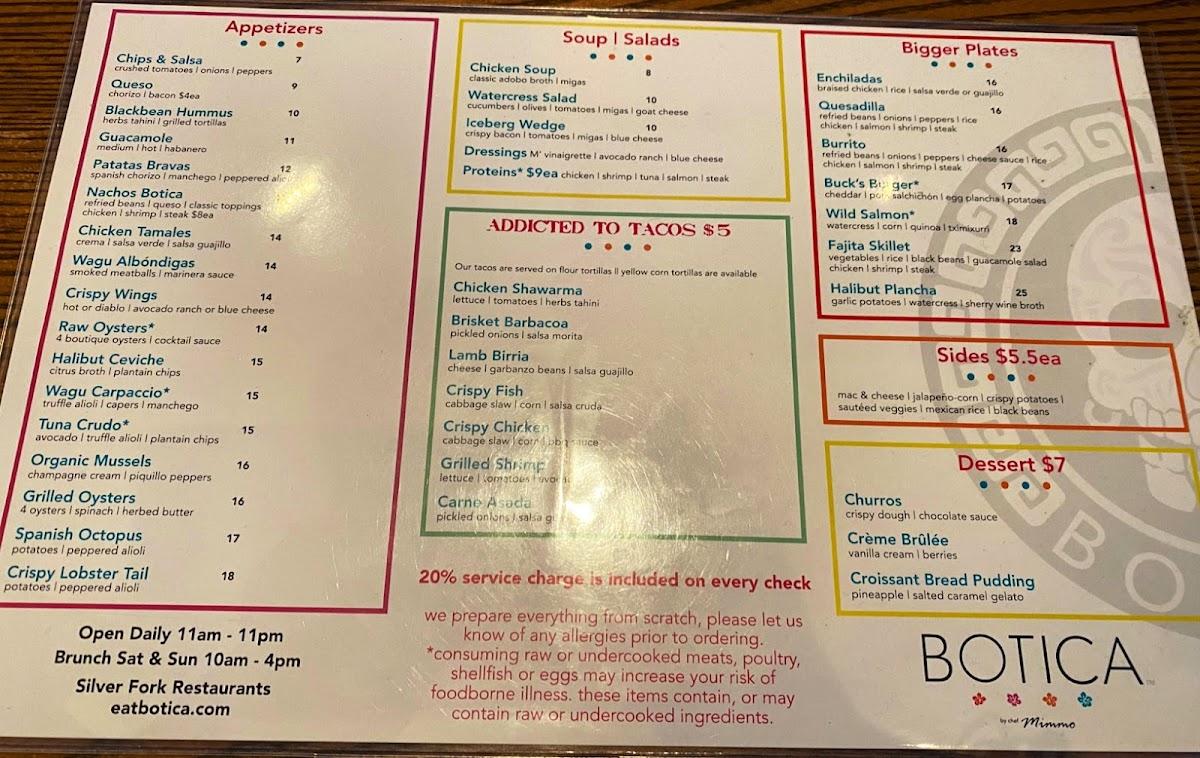 Appetizers
Chips & Salsa 7
crushed tomatoes | onions | peppers
Queso 9
chorizo | bacon $4ea
Blackbean Hummus 10
herbs tahini | grilled tortillas
Guacamole 11
medium | hot | habanero
Patatas Bravas 12
spanish chorizo | manchego | peppered
Nachos Botica
refried beans | queso | classic toppings
chicken | shrimp | steak $8ea
Chicken Tamales 14
crema | salsa verde | salsa guajillo
Wagu Albóndigas 14
smoked meatballs | marinera sauce
Crispy Wings 14
hot or diablo | avocado ranch or blue cheese
Raw Oysters* 14
4 boutique oysters | cocktail sauce
Halibut Ceviche 15
citrus broth | plantain chips
Wagu Carpaccio* 15
truffle alioli | capers | manchego
Tuna Crudo* 15
avocado | truffle alioli | plantain chips
Organic Mussels 16
champagne cream | piquillo peppers
Grilled Oysters 16
4 oysters | spinach | herbed butter
Spanish Octopus 17
potatoes | peppered alioli
Crispy Lobster Tail 18
potatoes | peppered alioli
Open Daily 11am - 11pm
Brunch Sat & Sun 10am - 4pm
Silver Fork Restaurants
eatbotica.com
Soup | Salads
Chicken Soup 8
classic adobo broth | migas
Watercress Salad 10
cucumbers | olives | tomatoes | migas | goat cheese
Iceberg Wedge 10
crispy bacon | tomatoes | migas | blue cheese
Dressings M' vinaigrette | avocado ranch | blue cheese
Proteins* $9ea chicken | shrimp | tuna | salmon | steak
ADDICTED TO TACOS $5
Our tacos are served on flour tortillas || yellow corn tortillas are available
Chicken Shawarma
lettuce | tomatoes | herbs tahini
Brisket Barbacoa
pickled onions | salsa morita
Lamb Birria
cheese | garbanzo beans | salsa guajillo
Crispy Fish
cabbage slaw | corn | salsa cruda
Crispy Chicken
cabbage slaw | corn | bbq sauce
Grilled Shrimp
lettuce | tomatoes |
Carne Asada
pickled onions | salsa
20% service charge is included on every check
we prepare everything from scratch, please let us
know of any allergies prior to ordering.
*consuming raw or undercooked meats, poultry,
shellfish or eggs may increase your risk of
foodborne illness. these items contain, or may
contain raw or undercooked ingredients.
Bigger Plates
Enchiladas 16
braised chicken | rice | salsa verde or guajillo
Quesadilla 16
refried beans | onions | peppers | rice
chicken | salmon | shrimp | steak
Burrito 16
refried beans | onions | peppers | cheese sauce | rice
chicken | salmon | shrimp | steak
Buck's Burger* 17
cheddar | pork salchichón | egg plancha | potatoes
Wild Salmon* 18
watercress | corn | quinoa | tximixurri
Fajita Skillet 23
vegetables | rice | black beans | guacamole salad
chicken | shrimp | steak
Halibut Plancha 25
garlic potatoes | watercress | sherry wine broth
Sides $5.5ea
mac & cheese | jalapeño-corn | crispy potatoes |
sautéed veggies | mexican rice | black beans
Dessert $7
Churros
crispy dough | chocolate sauce
Crème Brûlée
vanilla cream | berries
Croissant Bread Pudding
pineapple | salted caramel gelato
BO
BOTICA TM
by chef Mimmo